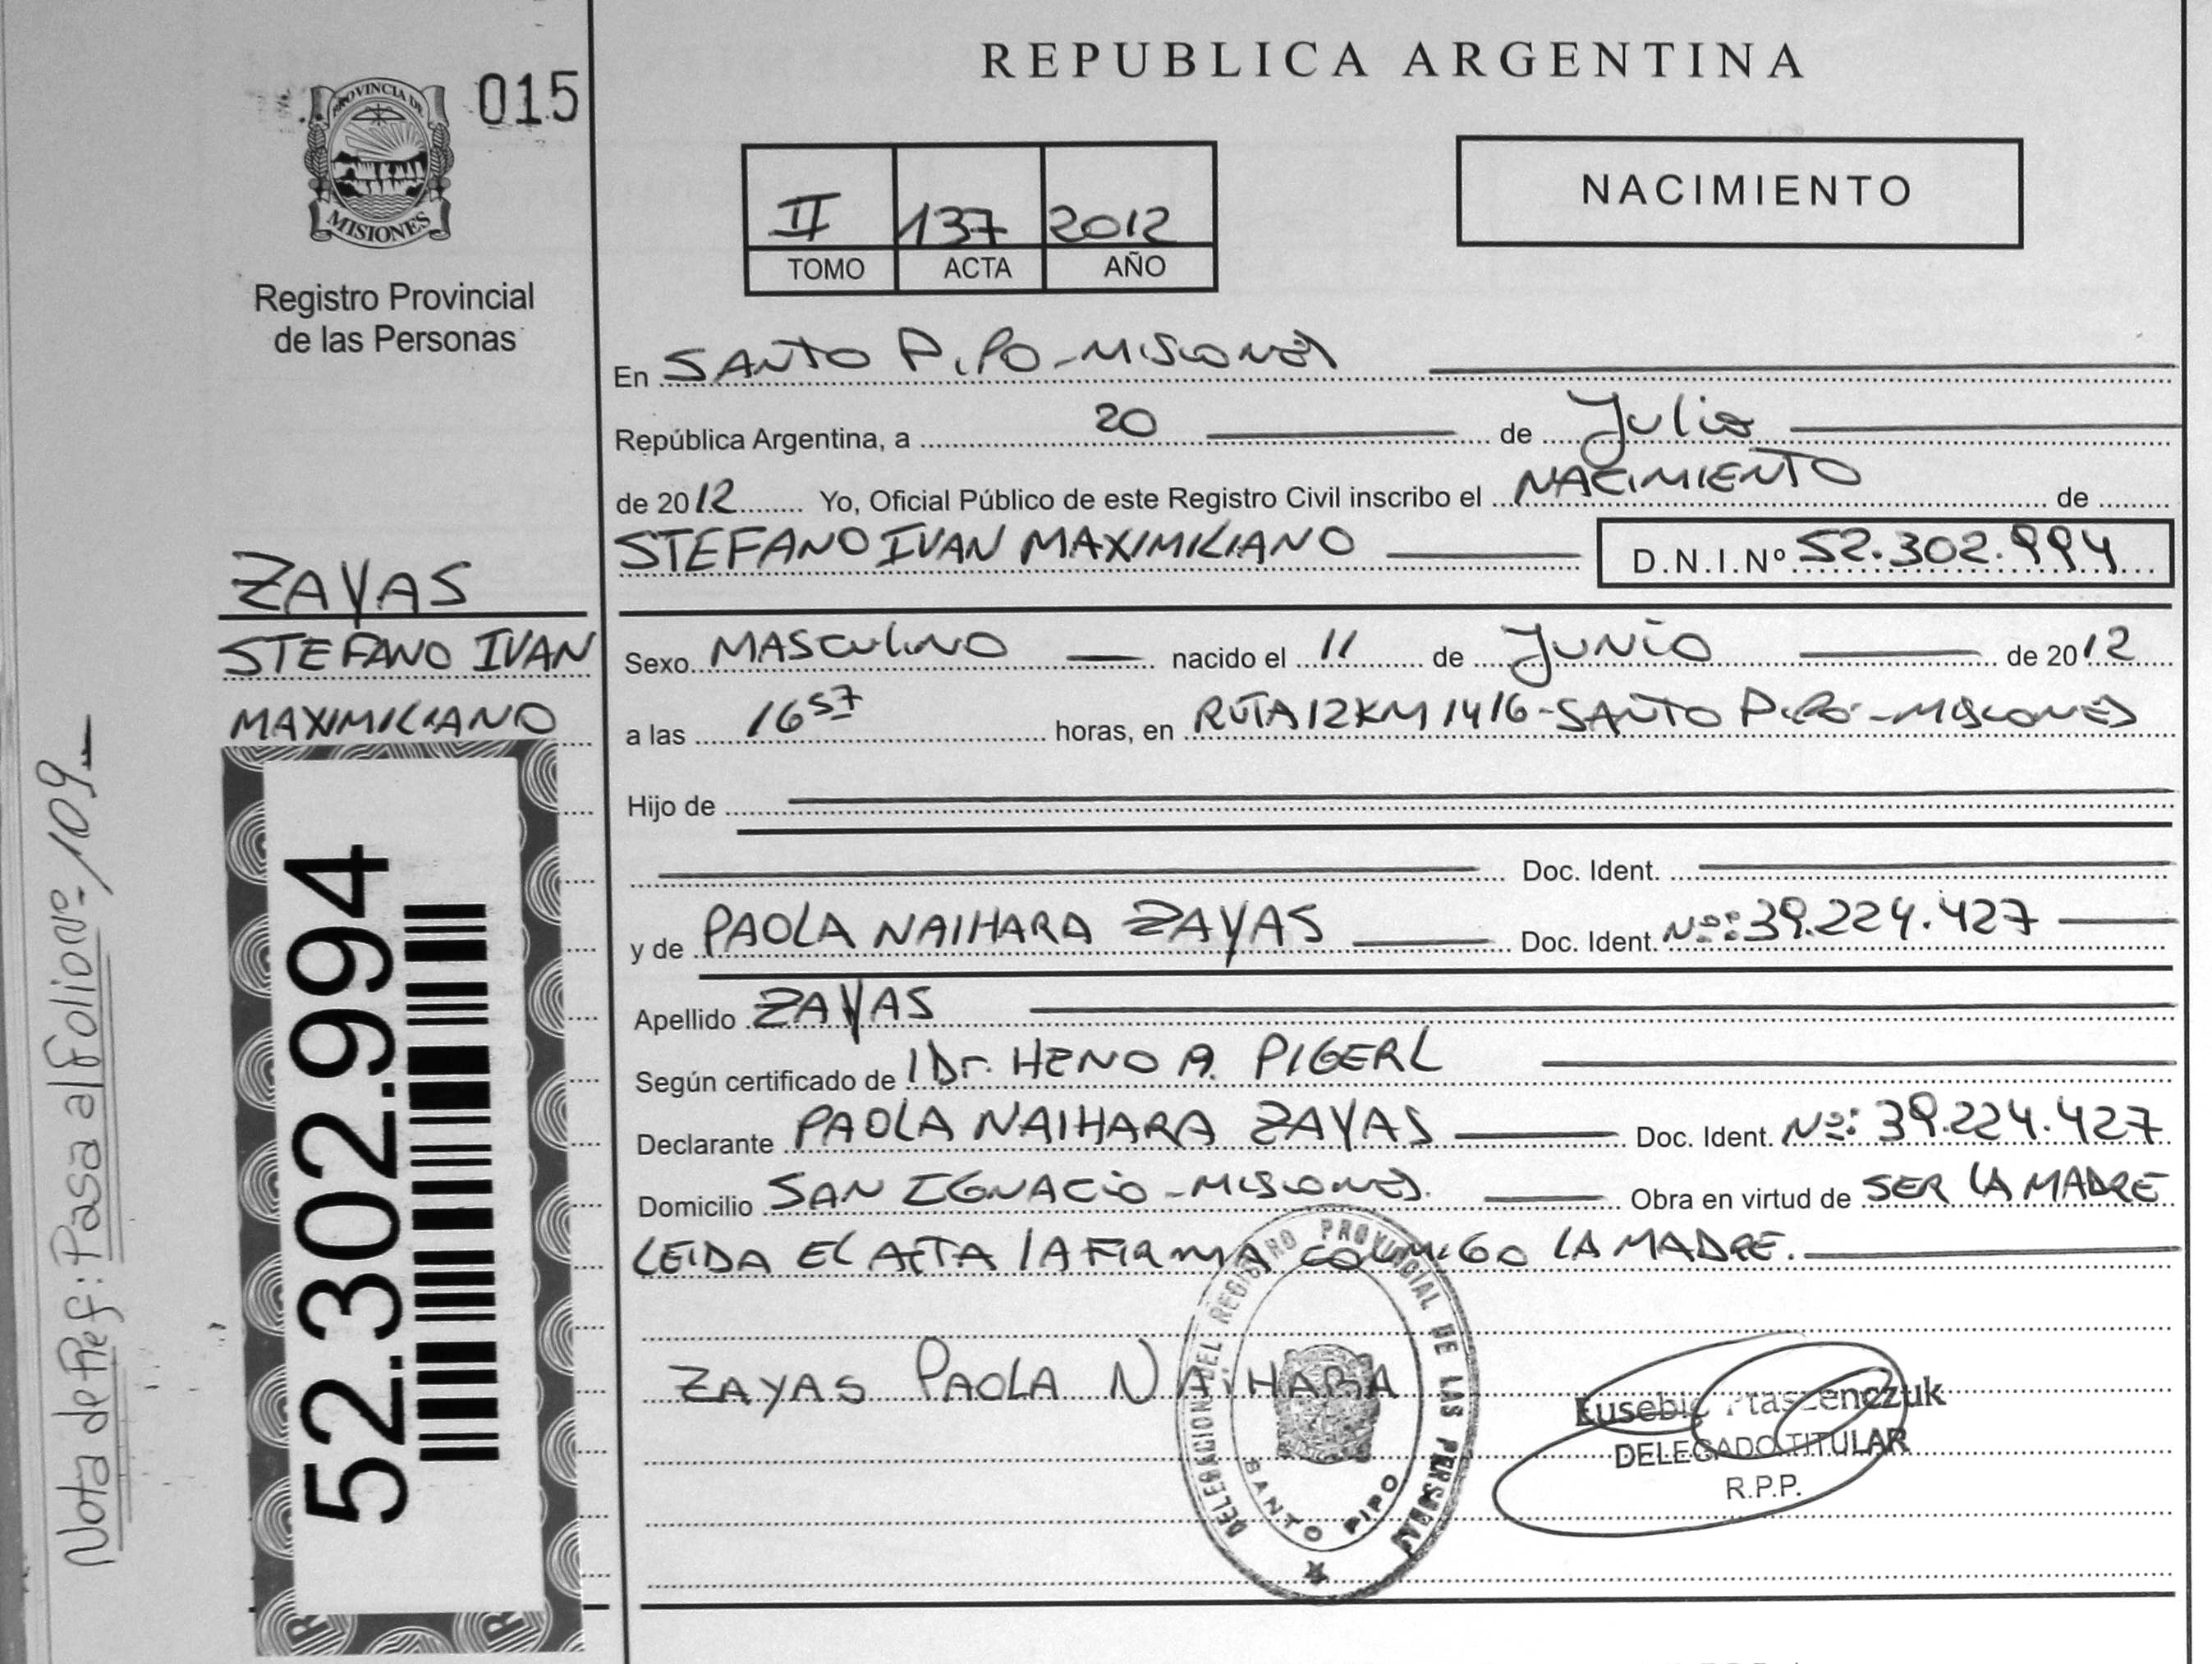 REPUBLICA ARGENTINA
PROVINCIA DE
MISIONES
015
Registro Provincial
de las Personas
II 137 2012
TOMO ACTA AÑO
NACIMIENTO
En SANTO PIPO-MISIONES
República Argentina, a 20 de Julio
de 2012 Yo, Oficial Público de este Registro Civil inscribo el NACIMIENTO de
STEFANO IVAN MAXIMILIANO D.N.I.Nº 52.302.994
ZAYAS
STEFANO IVAN
MAXIMILIANO
52.302.994
Nota de Ref: Pasa al Folio nº 109
Sexo MASCULINO nacido el 11 de JUNIO de 2012
a las 16 57 horas, en RUTA 12 KM 1416-SANTO PIPO-MISIONES
Hijo de
Doc. Ident.
y de PAOLA NAIHARA ZAYAS Doc. Ident. Nº: 39.224.427
Apellido ZAYAS
Según certificado de Dr. HENO A. PIGERL
Declarante PAOLA NAIHARA ZAYAS Doc. Ident. Nº: 39.224.427
Domicilio SAN IGNACIO-MISIONES. Obra en virtud de SER LA MADRE
LEIDA EL ACTA LA FIRMA CONMIGO LA MADRE.
ZAYAS PAOLA NAIHARA
DELEGACION DEL REGISTRO PROVINCIAL DE LAS PERSONAS
SANTO PIPO
Eusebio Ptaszenczuk
DELEGADO TITULAR
R.P.P.